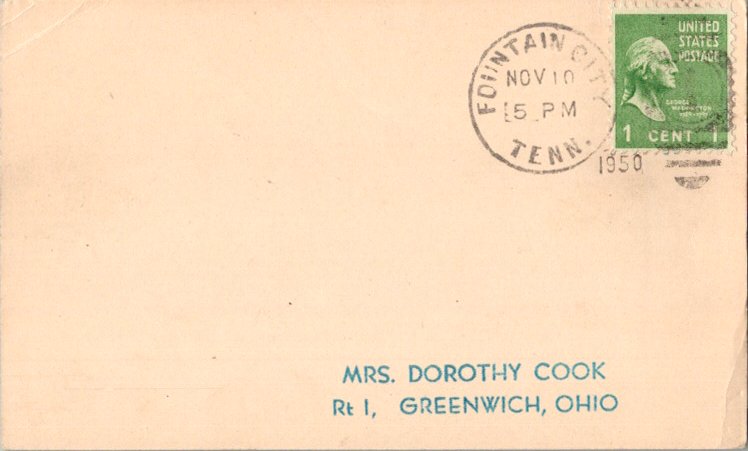 FOUNTAIN CITY
NOV 10
5 PM
TENN.
1950
UNITED
STATES
POSTAGE
GEORGE
WASHINGTON
1 CENT 1
MRS. DOROTHY COOK
Rt 1, GREENWICH, OHIO